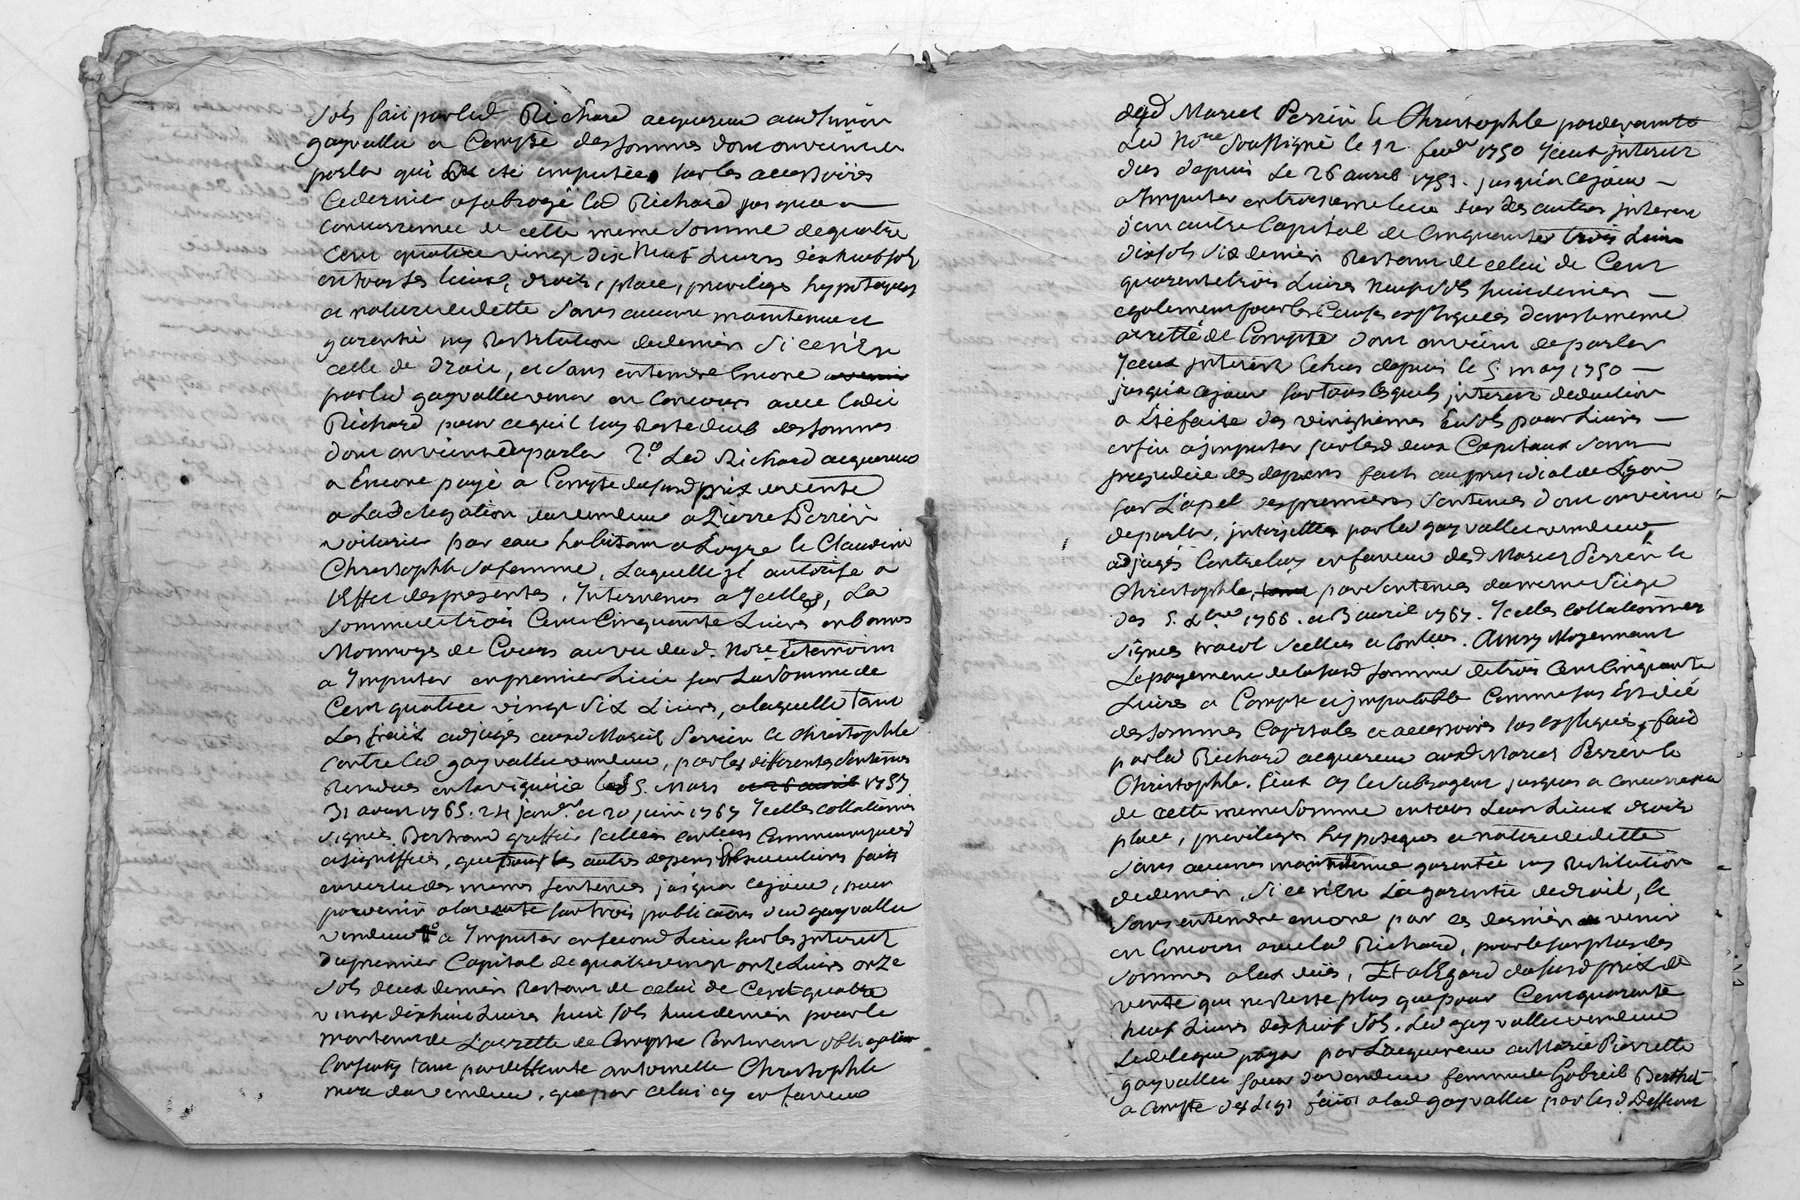 sols fait par led Richard acquereur aud
gayvallet a Compte des sommes dont on vient de
parler qui été imputées sur les accessoires
Ce dernier a subrogé led Richard jusqua
concurrence de cette meme somme de quatre
Cent quatre vingt dix Neuf Livres dix huit sols
en tous ses lieux, droits, place, privileges hypoteques
et nature de dette sans aucune maintenue et
garentie ny Restitution de deniers Si ce n'est
celle de droit, et sans entendre Encore
par led gayvallet venir en Concours avec led
Richard pour ce qui luy Reste deub des sommes
dont on vient de parler 2° Led Richard acquereur
a Encore payé a Compte dususd prix de vente
a La Delegation du vendeur a Pierre Perrin
voiturier par eau habitant a Loyre et Claudine
Christophle sa femme, Laquelle il autorise a
l'Effet des presentes, Intervenus a Icelles, La
somme de trois Cent Cinquante Livres en bonnes
Monnoye de Cours au vu dud. Nore et temoins
a Imputer en premier Lieu sur La somme de
Cent quatre vingt six Livres, a laquelle tant
Les fraix adjugés auxd Mariés Perrin et Christophle
Contre led gayvallet vendeur, par les differentes sentences
Rendues en la viguerie les 5. Mars et 26 avril 1757
31 aoust 1765. 24 janv.er et 20 juin 1767 Icelles collationnés
signés Bertrand greffier scellées Communiquées
et signiffiées, que pour les autres depens faits
en vertu des memes sentences jusqua ce jour, pour
parvenir a la vente sur trois publications dud gayvallet
vendeur a Imputer en second Lieu sur les interest
du premier Capital de quatre vingt onze Livres onze
sols deux deniers Restant de celui de Cent quatre
vingt dix huit Livres huit sols huit deniers pour le
montant de L'arretté de Compte Contenant obligation
Consenty tant par deffunte antoinette Christophle
mere du vendeur, que par celui cy en faveur
desd Mariés Perrin et Christophle pardevant
Led Nore soussigné le 12 fevr 1750 Iceux interest
dus depuis Le 26 avril 1751. jusqu'a ce jour
a Imputer en troisieme lieu sur des autres interest
d'un autre Capital de Cinquante trois Livres
dix sols six deniers Restant de celui de Cent
quarente trois Livres Neuf sols huit deniers
egalement pour les Causes expliquées dans le meme
arretté de Compte dont on vient de parler
Iceux interest Echus depuis le 5 may 1750
jusqu'a ce jour sur tous lesquels interest deduction
a été faite des vingtiemes En sols pour Livres
enfin a imputer sur lesd deux Capitaux sans
prejudice des depens faits au presidial de Lyon
sur L'apel des premieres sentences dont on vient
de parler, interjettée par led gayvallet vendeur
adjugés Contre luy en faveur desd Mariés Perrin et
Christophle, par sentences du meme siege
des 5. Xbre 1766. et 3 avril 1767. Icelles collationnés
signés scellées et Contlées. Ainsy Moyennant
Le payement de la susd somme de trois Cent Cinquante
Livres a Compte et imputable Comme sus Est dit
des sommes Capitales et accessoires sus expliqués, fait
par led Richard acquereur auxd Mariés Perrin et
Christophle. Ceux cy le subrogent jusques a concurrence
de cette meme somme en tous Leurs Lieux droits
place, privileges hypoteques et nature de dette
sans aucune maintenue garentie ny Restitution
de deniers, Si ce n'est La garentie de droit, et
sans entendre encore par ces derniers venir
en Concours avec led Richard, pour le surplus des
sommes a eux dües, Et a l'Egard dusd prix de
vente qui ne Reste plus que pour Cent quarente
neuf Livres dix huit sols. Led gayvallet vendeur
Le delegue payer par L'acquereur a Marie Pierrette
gayvallet soeur du vendeur femme de Gabriel Berthet
a Compte des Legs faits a lad gayvallet par lesd Deffunt